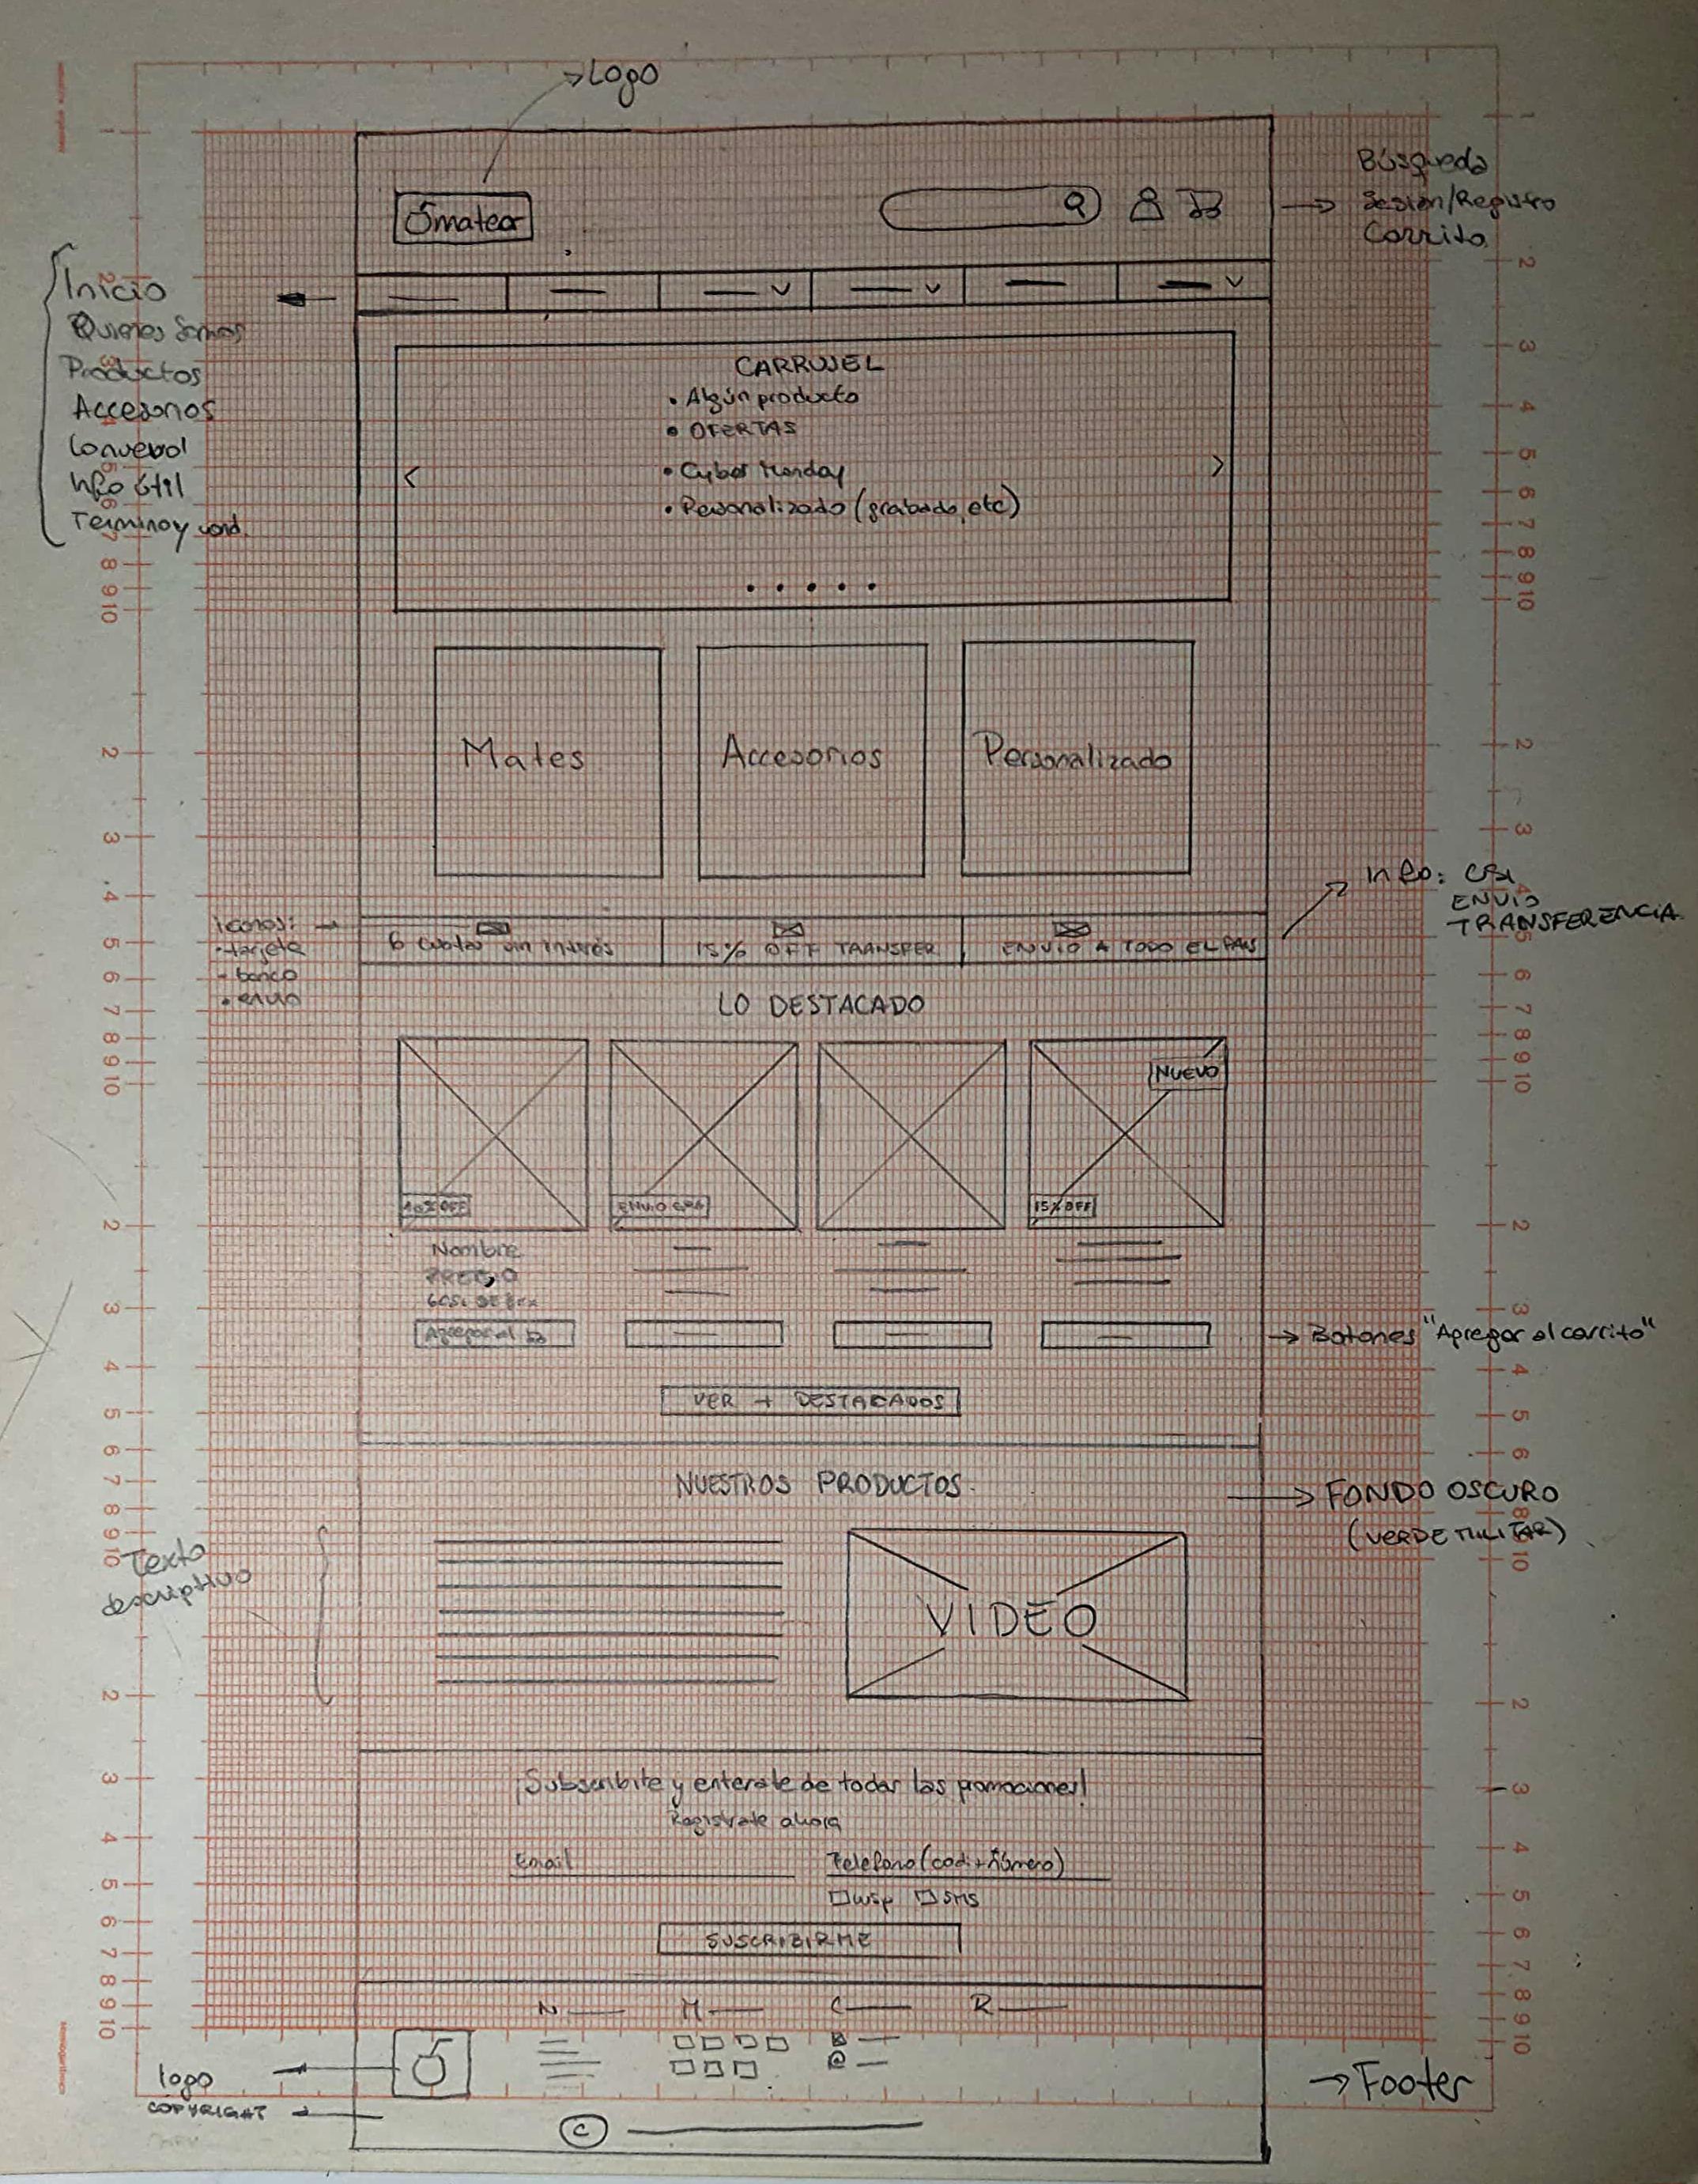 Logo
Omatear
Búsqueda
Sesión/Registro
Carrito
Inicio
Quienes Somos
Productos
Accesorios
Info útil
Termino y cond.
CARRUSEL
• Algún producto
• OFERTAS
• Cyber Monday
• Personalizado (grabado, etc)
Mates
Accesorios
Personalizado
Info: CSI
ENVIO
TRANSFERENCIA
iconos:
• tarjeta
- banco
• envio
6 cuotas sin interés
15% OFF TRANSFER
ENVIO A TODO EL PAIS
LO DESTACADO
NUEVO
10% OFF
ENVIO GRA
15% OFF
Nombre
PRECIO
6CSI DE $xx
Agregar al
Botones "Agregar al carrito"
VER + DESTACADOS
NUESTROS PRODUCTOS
FONDO OSCURO
(VERDE MILITAR)
Texto
descriptivo
VIDEO
¡Subscribite y enterate de todas las promociones!
Registrate ahora
Email
Telefono (cod. + Número)
wsp
SMS
SUSCRIBIRME
N
M
C
R
@
logo
COPYRIGHT
©
Footer
1
2
3
4
5
6
7
8
9
10
2
3
4
5
6
7
8
9
10
2
3
4
5
6
7
8
9
10